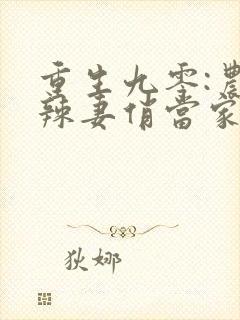 重生九零:農
辣妻俏當家
狄娜